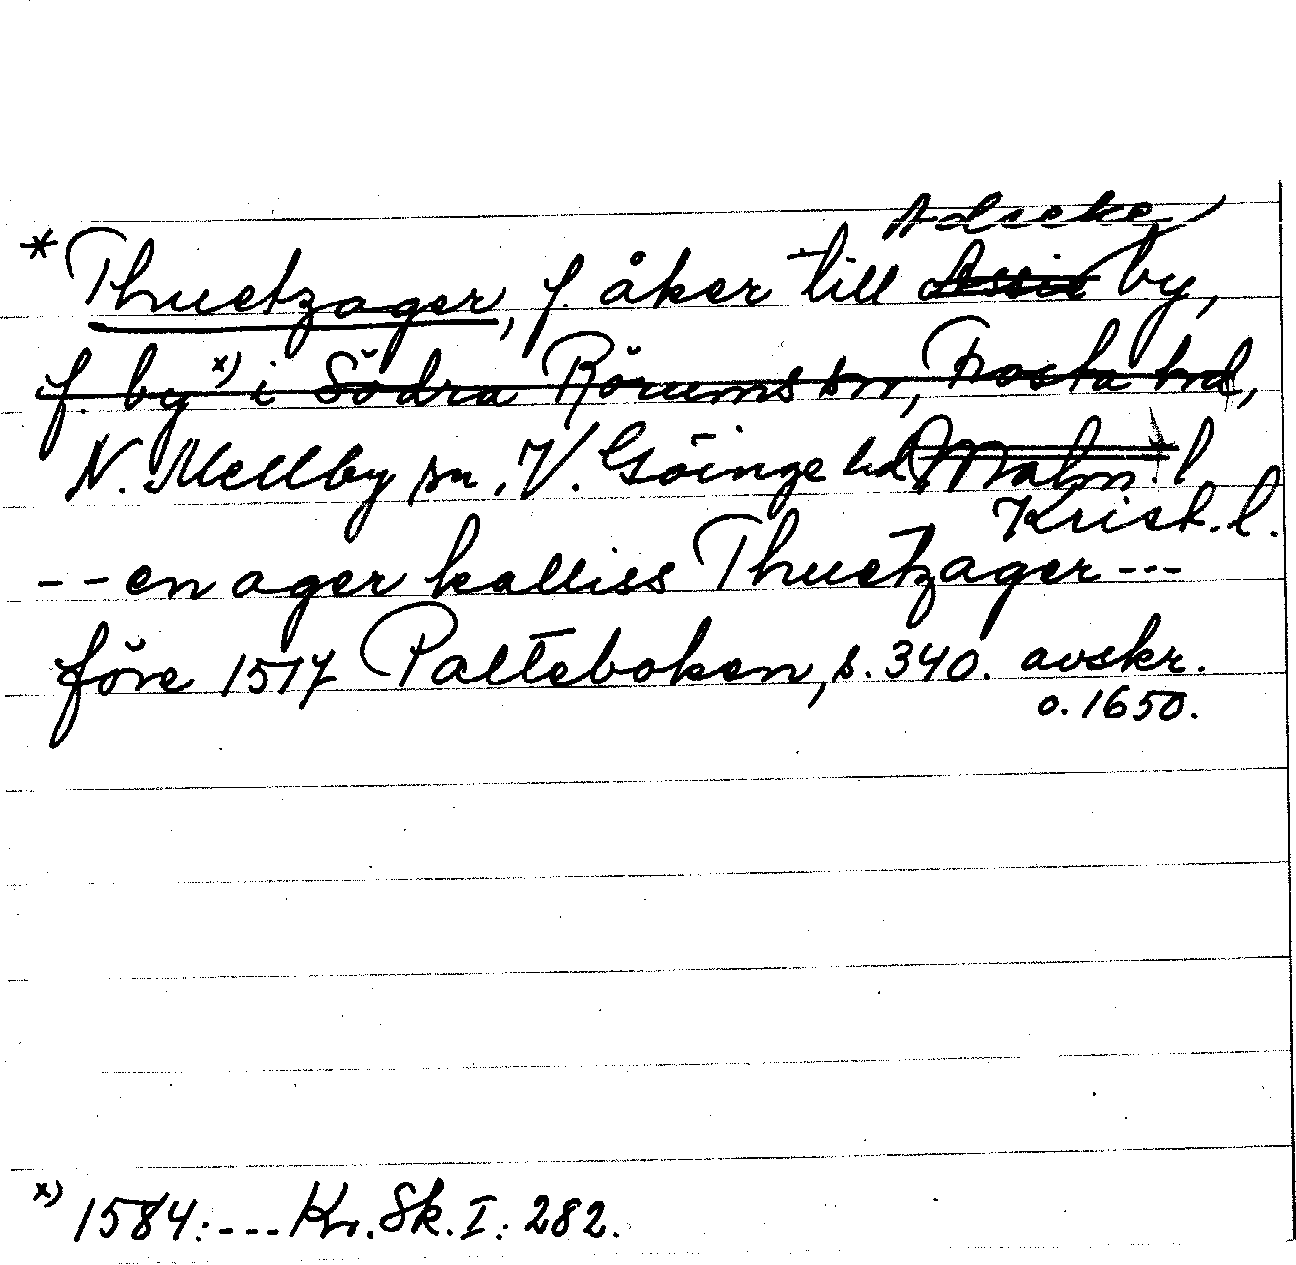 Adseke
* Thuetzager, f. åker till by,
f. by x) i Södra Rörums sn, Frosta hd,
N. Mellby sn, V. Göinge hd Malm. l.
Krist. l.
-- en ager kalliss Thuetzager ---
före 1517 Palteboken, s. 340. avskr.
o. 1650.
x) 1584: --- Kr. Sk. I: 282.